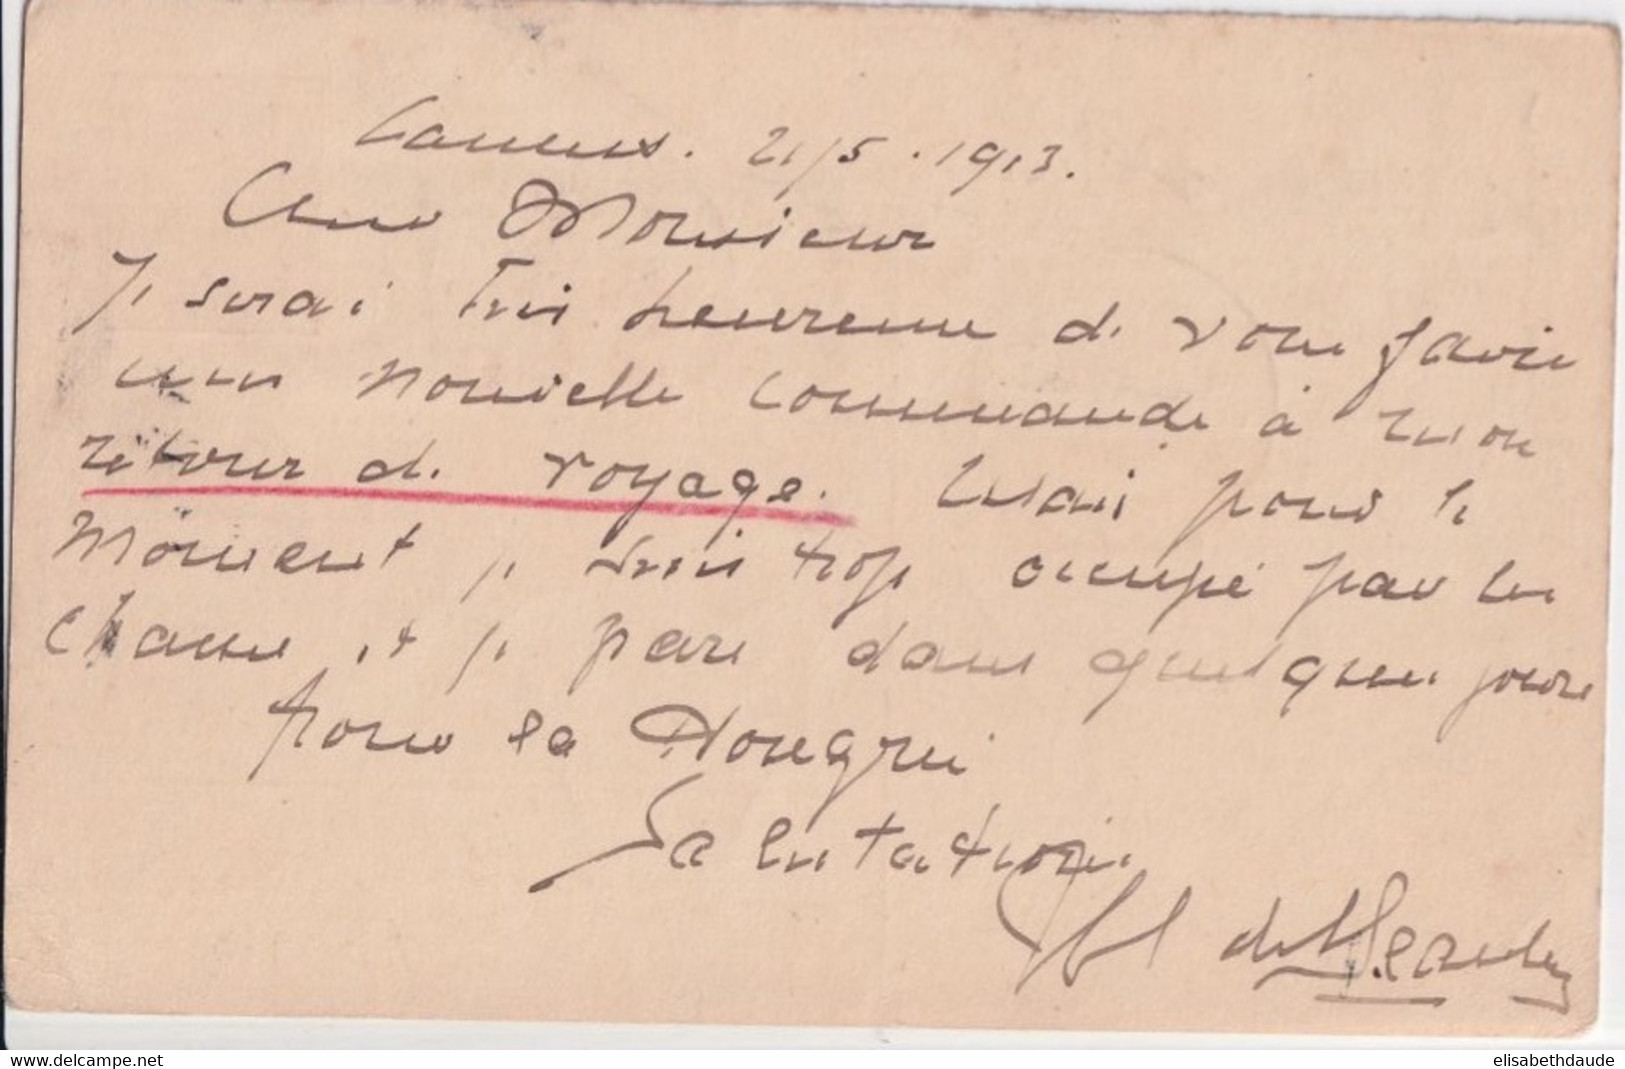 21/5.1913.
Cher Monsieur
Je serai très heureux de vous faire
une nouvelle commande à mon
retour de voyage. Mais pour le
moment je suis trop occupé par la
chasse et je pars dans quelques jours
pour la Hongrie
Salutations
de
www.delcampe.net
elisabethdaude